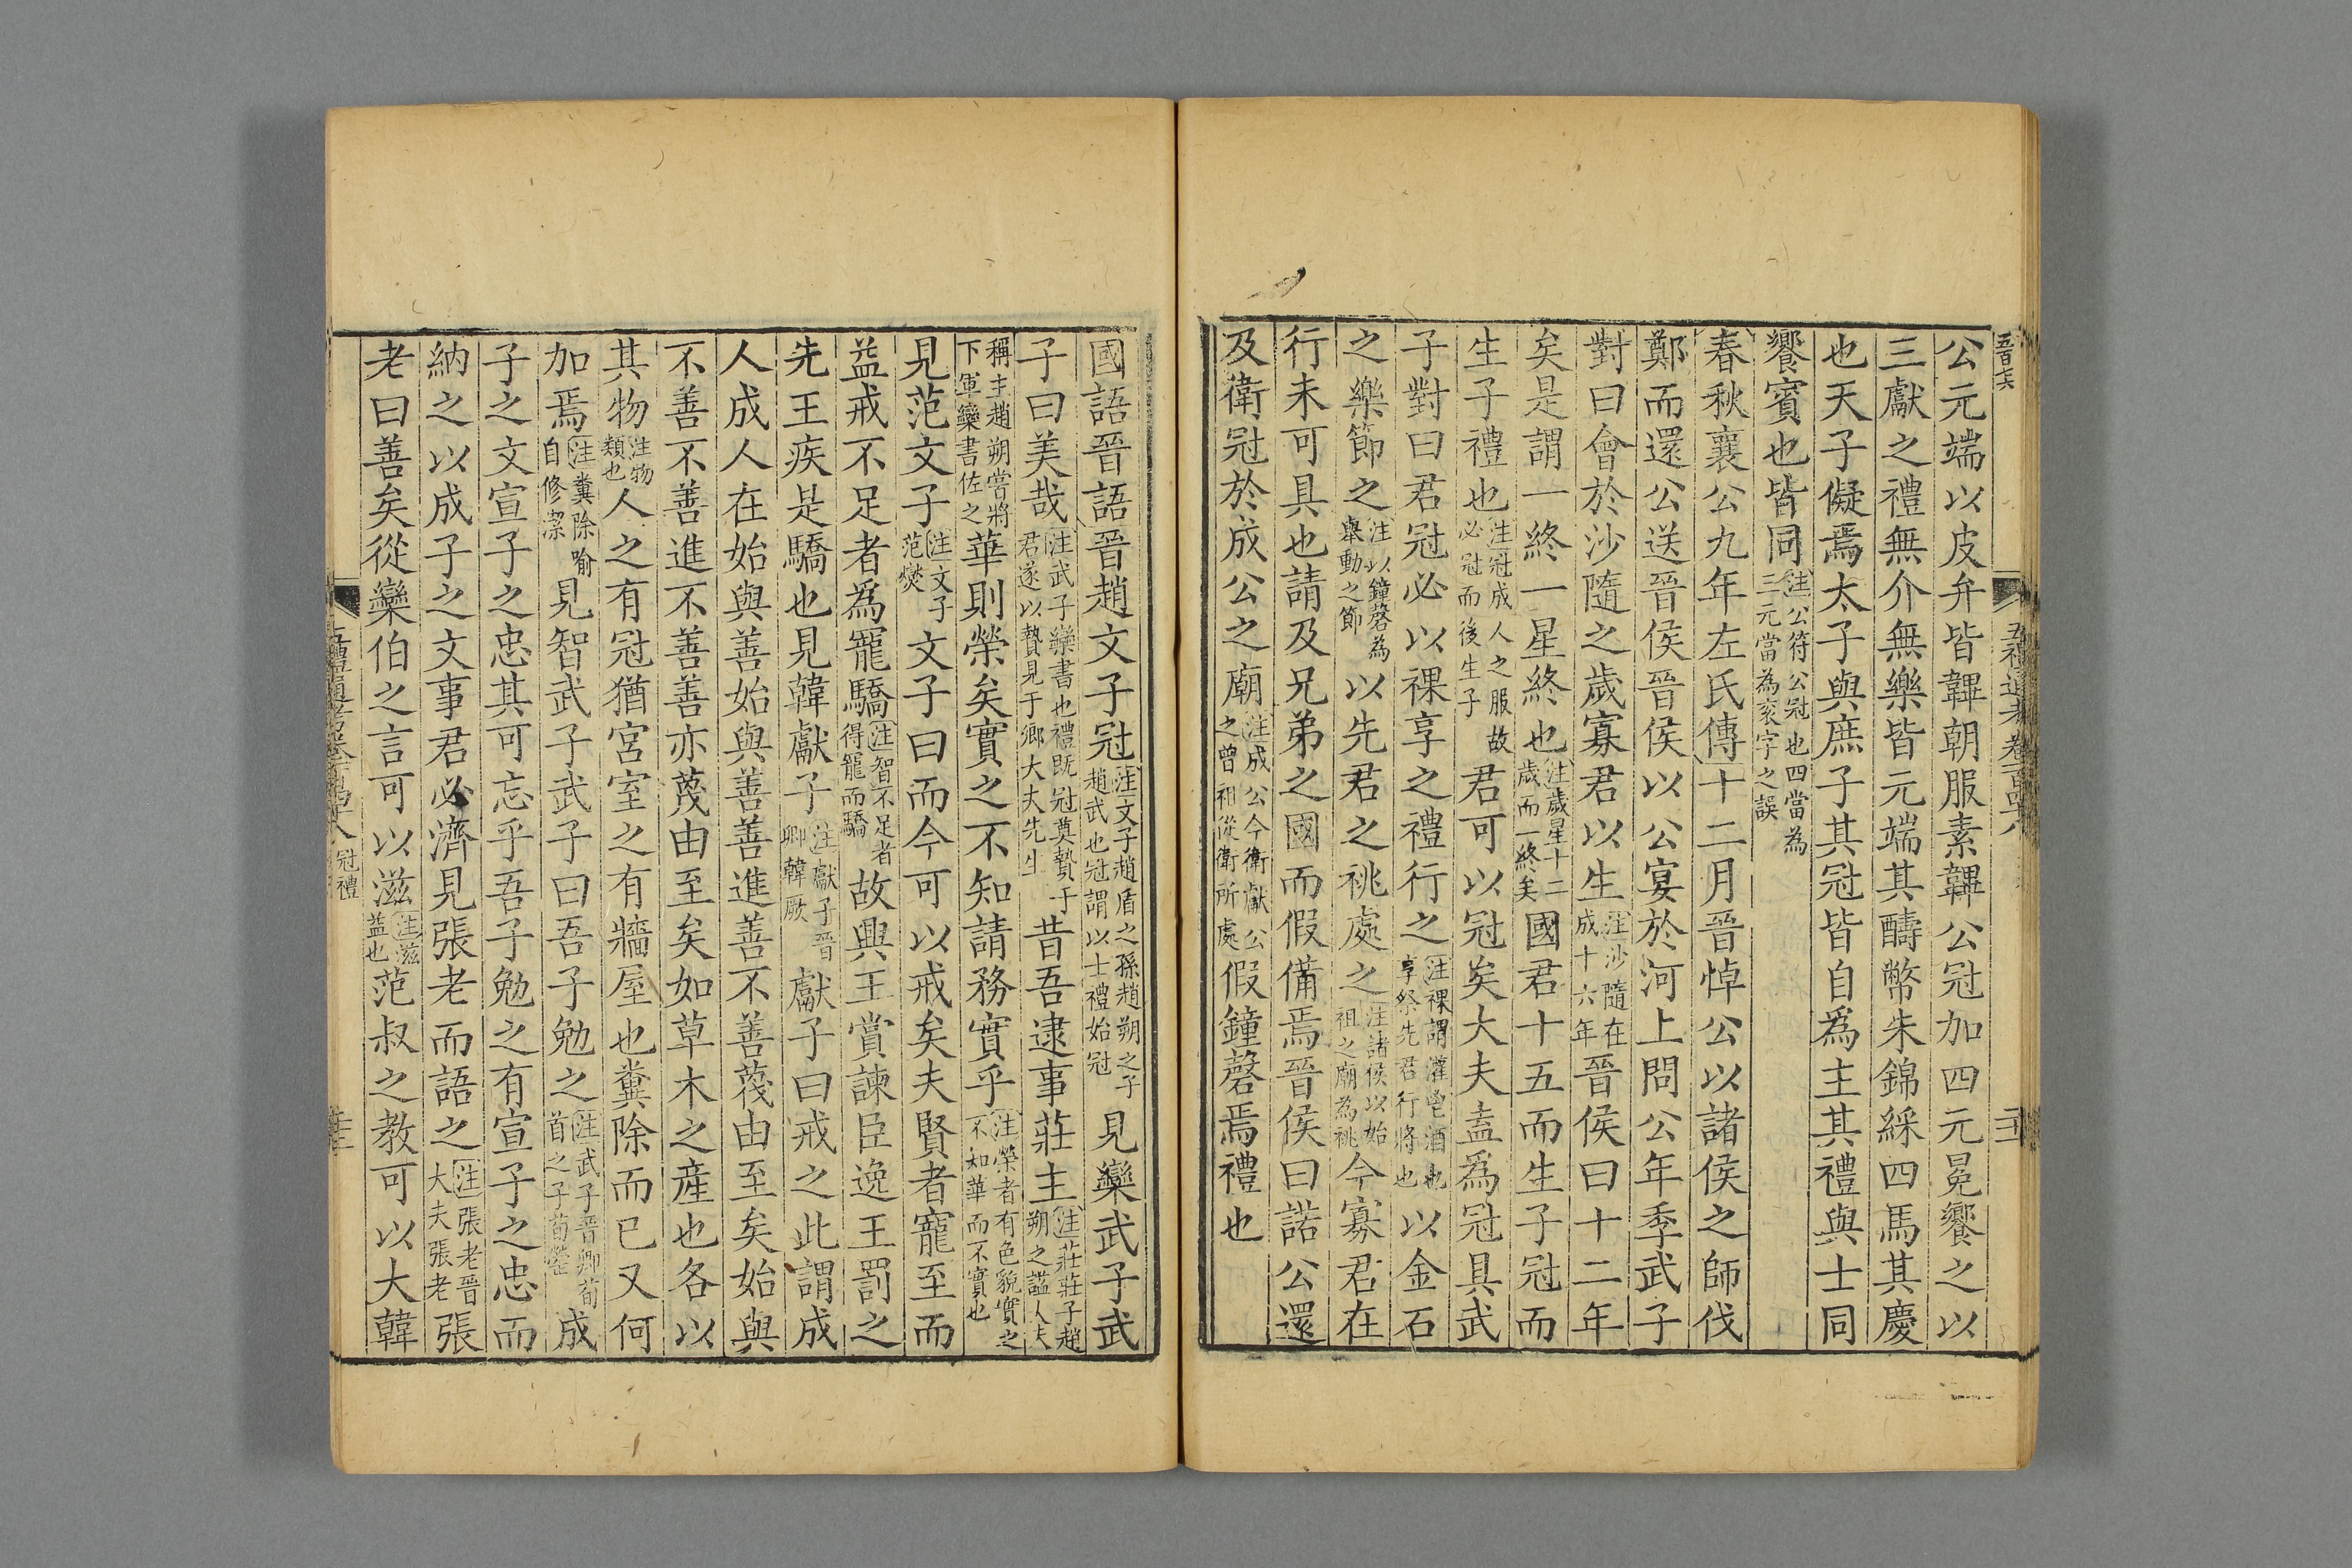 公元端以皮弁皆韠朝服素韠公冠加四元冕饗之以
三獻之禮無介無樂皆元端其醻幣朱錦綵四馬其慶
也天子儗焉太子與庶子其冠皆自爲主其禮與士同
饗賓也皆同注公符公冠也四當為三元當為衮字之誤
春秋襄公九年左氏傳十二月晉悼公以諸侯之師伐
鄭而還公送晉侯晉侯以公宴於河上問公年季武子
對曰會於沙隨之歲寡君以生注沙隨在成十六年晉侯曰十二年
矣是謂一終一星終也注歲星十二歲而一終矣國君十五而生子冠而
生子禮也注冠成人之服故必冠而後生子君可以冠矣大夫盍爲冠具武
子對曰君冠必以祼享之禮行之注祼謂灌鬯酒也享祭先君行將也以金石
之樂節之注以鐘磬為舉動之節以先君之祧處之注諸侯以始祖之廟為祧今寡君在
行未可具也請及兄弟之國而假備焉晉侯曰諾公還
及衛冠於成公之廟注成公今衛獻公之曾祖從衛所處假鐘磬焉禮也
國語晉語晉趙文子冠注文子趙盾之孫趙朔之子趙武也冠謂以士禮始冠見欒武子武
子曰美哉注武子欒書也禮既冠奠贄于君遂以贄見于鄉大夫先生昔吾逮事莊主注莊莊子趙朔之諡人夫
稱主趙朔嘗將下軍欒書佐之華則榮矣實之不知請務實乎注榮者有色貌實之不知華而不實也
見范文子注文子范燮文子曰而今可以戒矣夫賢者寵至而
益戒不足者爲寵驕注智不足者得寵而驕故興王賞諫臣逸王罰之
先王疾是驕也見韓獻子注獻子晉卿韓厥獻子曰戒之此謂成
人成人在始與善始與善善進善不善蔑由至矣始與
不善不善進不善善亦蔑由至矣如草木之產也各以
其物注物類也人之有冠猶宮室之有牆屋也糞除而已又何
加焉注糞除喻自修潔見智武子武子曰吾子勉之注武子晉卿荀首之子荀罃成
子之文宣子之忠其可忘乎吾子勉之有宣子之忠而
納之以成子之文事君必濟見張老而語之注張老晉大夫張老張
老曰善矣從欒伯之言可以滋注滋益也范叔之教可以大韓
冠禮